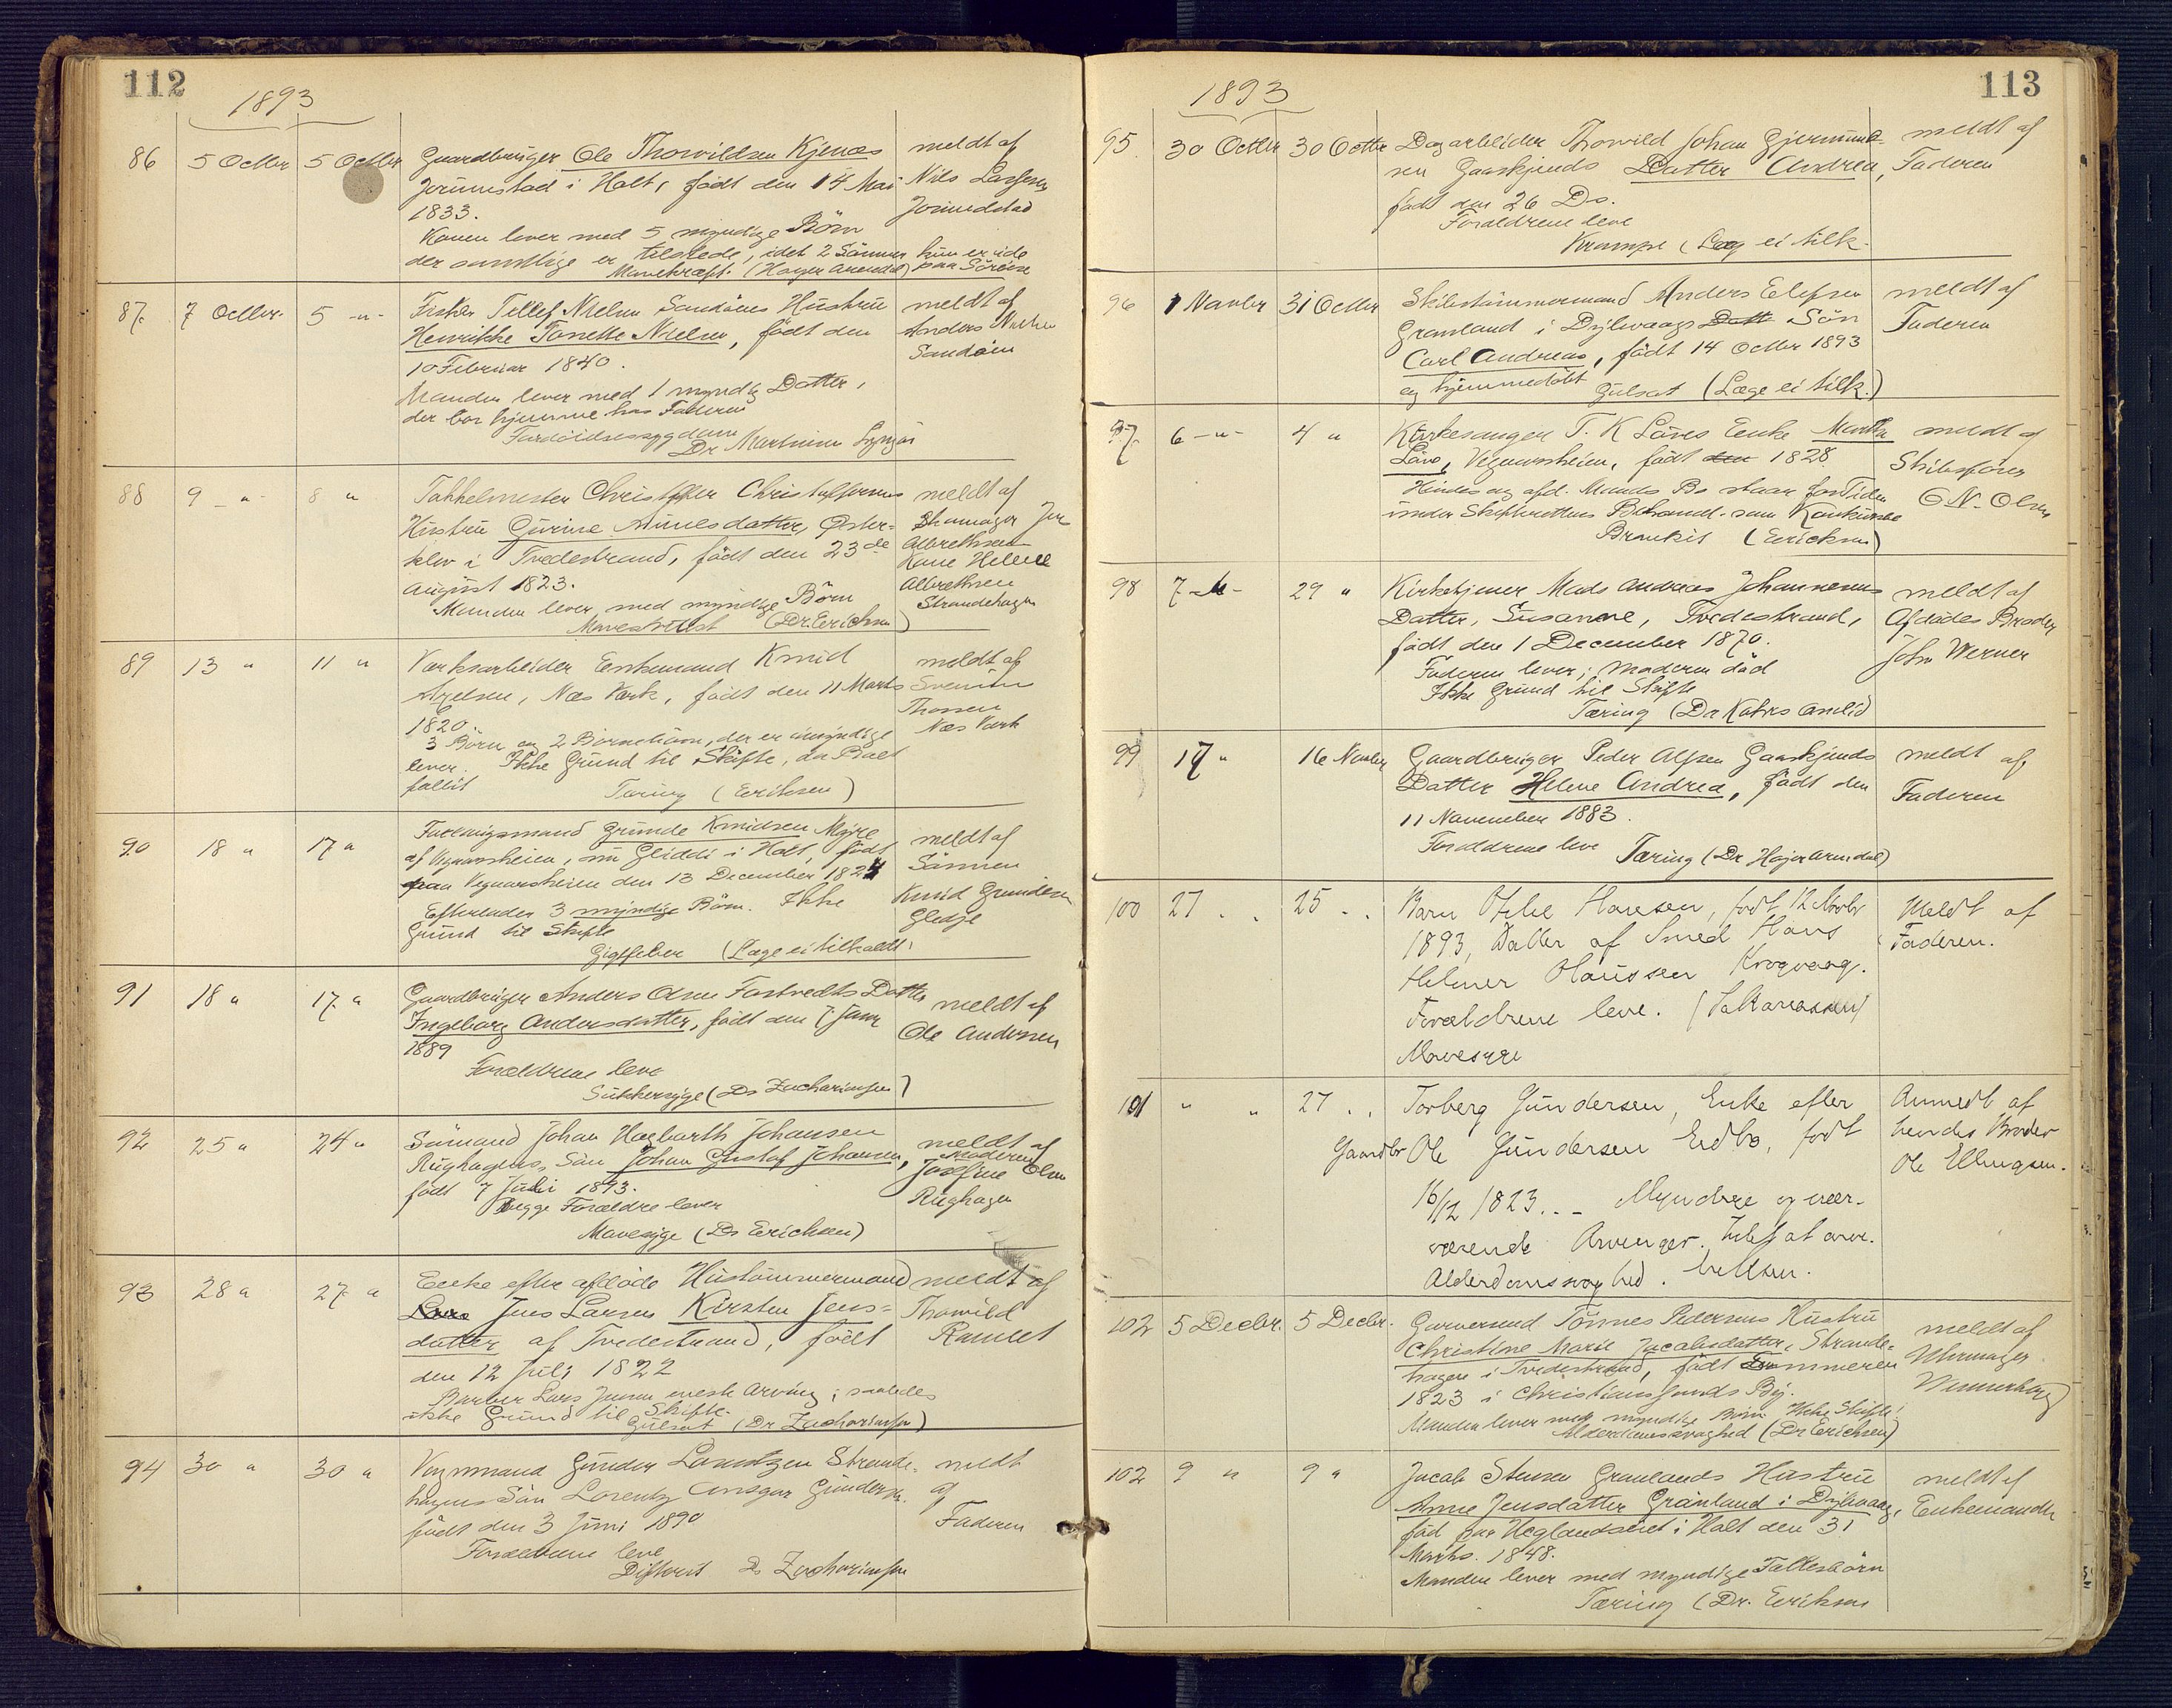 112
1893
86 5 Octbr 5 Octbr Gaardbruger Ole Thorvildsen Kjenæs meldt af
Jorunnstad i Holt, født den 14 Mai Nils Larssen
1833. Jorunnstad
Konen lever med 5 myndige Börn
der samtlige er tilstede, idet 2 Sönner hun er ude paa Söreise
Mavekræft. (Høyer Arendal)
87. 7 Octbr. 5 -"- Fisker Tellef Nielsen Sandöens Hustru meldt af
Henrikke Tonette Nielsen, født den Anders
10 Februar 1840. Sandöen
Manden lever med 1 myndig Datter,
der bor hjemme hos Faderen
Dr Martinius Lyngör
88 9 -"- 8 " Takkelmester Christoffer Christoffersens meldt af
Hustru Gurine Aunesdatter, Öster- Skomager
klev i Tvedestrand, født den 23de Albrethsen
August 1823. Kone Helene
Albrethsen
Manden lever med myndige Börn Strandehagen
(Dr. Erichsen)
89 13 " 11 " Værksarbeider Enkemand Knud meldt af
Axelsen, Næs Værk, født den 11 Marts
1820. Thossen
3 Börn og 2 Börnebörn, der er umyndige Næs Værk
lever. Ikke Grund til Skifte, da Boet
fallit Tæring (Eriksen)
90 18 " 17 " Grunde Knudsen Myre meldt af
af Vegaarsheien, nu Gliddi i Holt, født Sönnen
paa Vegaarsheien den 13 December 1824 Knud Grundesen
Efterlader 3 myndige Börn. Ikke Gledje
Grund til Skifte
Gigtfeber (Læge ei tilkaldt)
91 18 " 17. " Gaardbruger Anders Olsen Fostvedts Datter meldt af
Ingeborg Andersdatter, født den 7 Janr Ole Andersen
1889
Forældrene leve
Sukkersyge (Dr Zachariassen)
92 25 " 24 " Sömand Johan Hagbarth Johansen meldt af
Rughagens Sön Johan Gustaf Johansen, Moderen
født 7 Juli 1893. Josefine Olsen
Begge Forældre lever Rughagen
Mavesyge (Dr Erichsen)
93 28 " 27. " Enke efter afdöde Hustömmermand meldt af
Lars Jens Larsen Kirsten Jens- Thorvild
datter af Tvedestrand, født Ramlet
den 12 Juli 1822
Barber Lars Jensen eneste Arving; saaledes
ikke Grund til Skifte.
Gulsot (Dr Zachariassen)
94 30 " 30 " Vognmand Gunder Lorentzen Strande- meldt
hagens Sön Lorentz Ansgar Gundersen. af
født den 3 Juni 1890 Faderen
Forældrene leve
Difterit Dr Zachariassen
113
1893
95. 30 Octbr 30 Octbr Dagarbeider Thorvild Johan Gjermund- meldt af
sen Gaaskjends Datter Andrea, Faderen
født den 26 Ds.
Forældrene leve
Krampe (Læg ei tilk.
96 1 Novbr 31 Octbr Skibstömmermand Anders Elefsen meldt af
Granland i Dybvaags Datt Sön Faderen
Carl Andreas, födt 14 Octbr 1893
og hjemmedöbt Gulsot (Læge ei tilk.)
97. 6 -"- 4 " Kirkesanger T. K Lövs Enke Marthe meldt af
Löv, Vegaarsheien, født den 1828 Skibsförer
Hendes og afd. Mands Bo staar for Tiden O N. Olsen
under Skifterettens Behandl. som Konkursbo
Bronkit (Erichsen)
98 7 -"- 29 " Kirketjener Mads Andreas Johannesens meldt af
Datter, Susanne, Tvedestrand, Afdødes Broder
født den 1 December 1870. John Werner
Faderen lever; Moderen död
Ikke Grund til Skifte
Tæring
99 17 " 16 Novbr Gaardbruger Peder Alfsen Gaaskjends meldt af
Datter Helene Andrea, født den Faderen
11 November 1883.
Forældrene leve Tæring (Dr. Højer Arendal)
100 27 . . 25 . . Barn Othel Hansen, født 12 Novbr Meldt af
1893, Datter af Smed Hans Faderen.
Helmer Hanssen Krogvaag.
Forældrene leve. (Zakariassen)
Mavesyge
101 " " 27 . . Torberg Gundersen, Enke efter Anmeldt af
Gaardbr Ole Gundersen Eidbo, født hendes Broder
16/12 1823. . _ Myndige og nær- Ole Ellingsen.
værende Arvinger. Intet at arve.
Alderdomssvaghed.
102 5 Decbr. 5 Decbr. Garversvend Tönnes Pedersens Hustru meldt af
Christine Marie Jacobsdatter, Strande- Uhrmager
hagen i Tvedestrand, født Sommeren Wennerberg
1823 i Christianssands By.
Manden lever med myndige Börn Ikke Skifte!
Alderdomssvaghed (Dr Erichsen)
102 9 " 9 " Jacob Stensen Granlands Hustru meldt af
Anne Jensdatter Granland i Dybvaag, Enkemanden
föd paa Heglandseiet i Holt den 31
Marts. 1848.
Manden lever med myndige Fællesbörn
Tæring (Dr. Eriksen